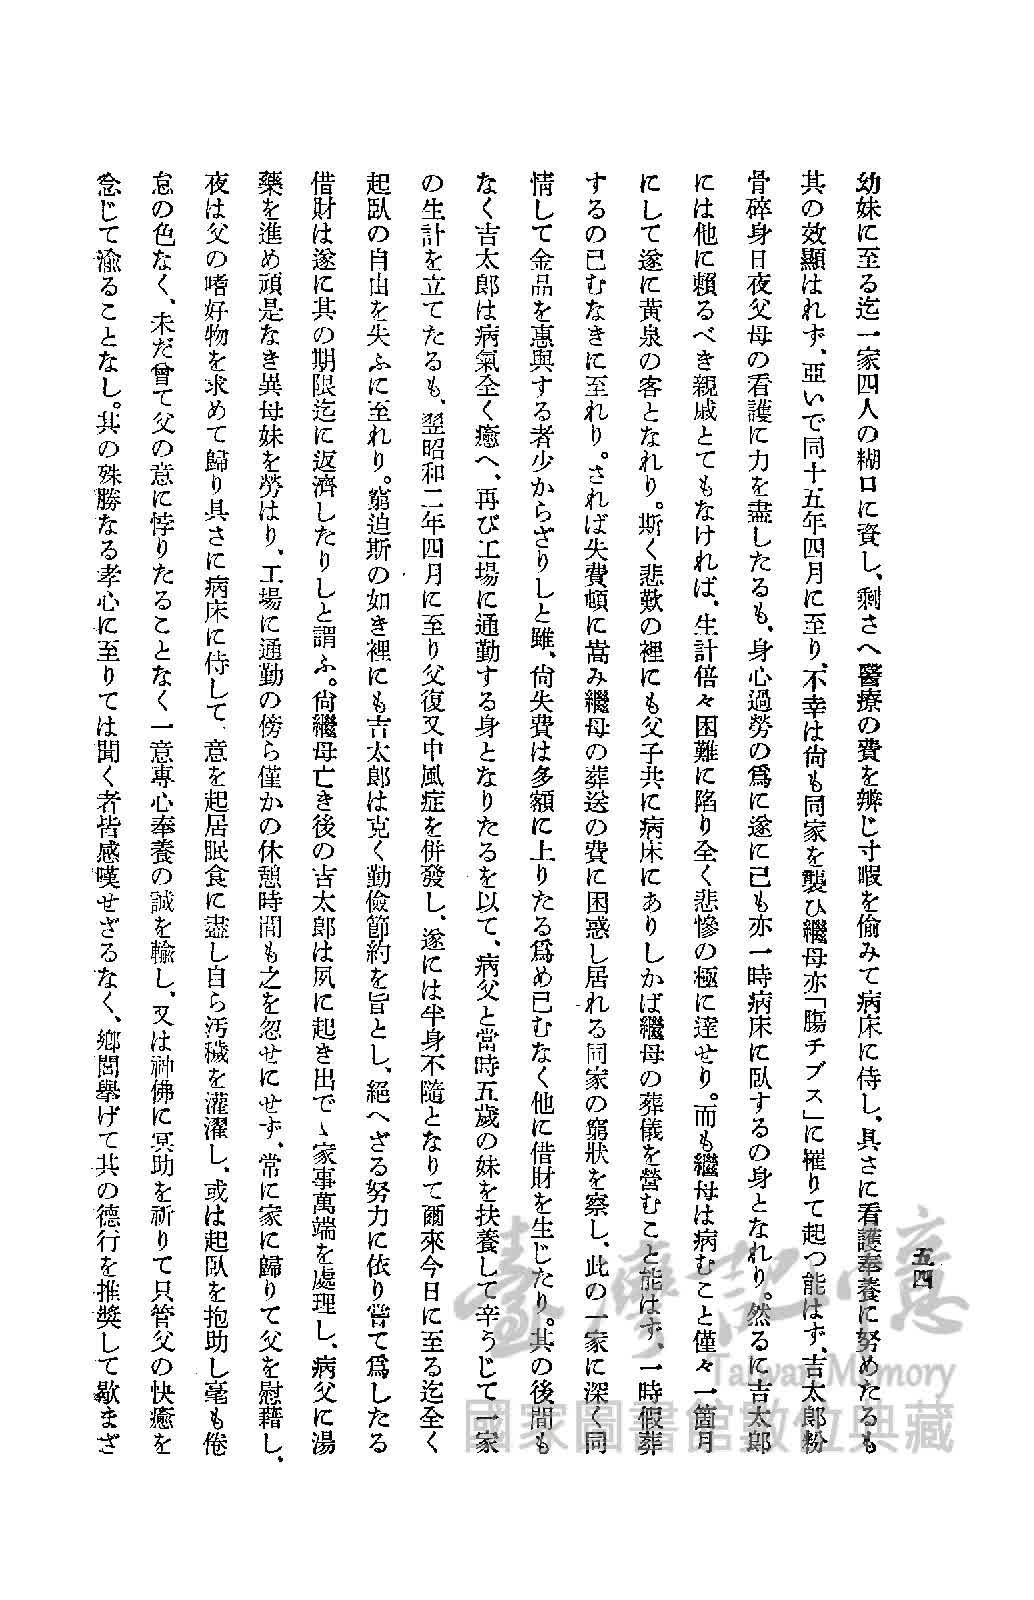 五四
幼妹に至る迄一家四人の糊口に資し、剩さへ醫療の費を辨じ寸暇を偷みて病床に侍し、具さに看護奉養に努めたるも
其の效顯はれず、亞いで同十五年四月に至り、不幸は尙も同家を襲ひ繼母亦「膓チブス」に罹りて起つ能はず、吉太郎粉
骨碎身日夜父母の看護に力を盡したるも、身心過勞の爲に遂に己も亦一時病床に臥するの身となれり。然るに吉太郎
には他に賴るべき親戚とてもなければ、生計倍々困難に陷り全く悲慘の極に達せり。而も繼母は病むこと僅々一箇月
にして遂に黃泉の客となれり。斯く悲歎の裡にも父子共に病床にありしかば繼母の葬儀を營むこと能はず、一時假葬
するの已むなきに至れり。されば失費頓に嵩み繼母の葬送の費に困惑し居れる同家の窮狀を察し、此の一家に深く同
情して金品を惠與する者少からざりしと雖、尙失費は多額に上りたる爲め已むなく他に借財を生じたり。其の後間も
なく吉太郎は病氣全く癒へ、再び工場に通勤する身となりたるを以て、病父と當時五歲の妹を扶養して辛うじて一家
の生計を立てたるも、翌昭和二年四月に至り父復又中風症を併發し、遂には半身不隨となりて爾來今日に至る迄全く
起臥の自由を失ふに至れり。窮迫斯の如き裡にも吉太郎は克く勤儉節約を旨とし、絕へざる努力に依り嘗て爲したる
借財は遂に其の期限迄に返濟したりしと謂ふ。尙繼母亡き後の吉太郎は夙に起き出でゝ家事萬端を處理し、病父に湯
藥を進め頑是なき異母妹を勞はり、工場に通勤の傍ら僅かの休憩時間も之を忽せにせず、常に家に歸りて父を慰藉し、
夜は父の嗜好物を求めて歸り具さに病床に侍して、意を起居眠食に盡し自ら汚穢を灌濯し、或は起臥を抱助し毫も倦
怠の色なく、未だ曾て父の意に悖りたることなく一意專心奉養の誠を輸し、又は神佛に冥助を祈りて只管父の快癒を
念じて渝ることなし。其の殊勝なる孝心に至りては聞く者皆感嘆せざるなく、鄕閭擧げて其の德行を推奬して歇まざ
臺灣記憶
Taiwan Memory
國家圖書館數位典藏